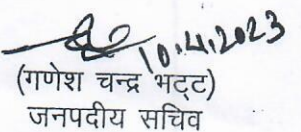 10.4.2023
(गणेश चन्द्र भट्ट)
जनपदीय सचिव